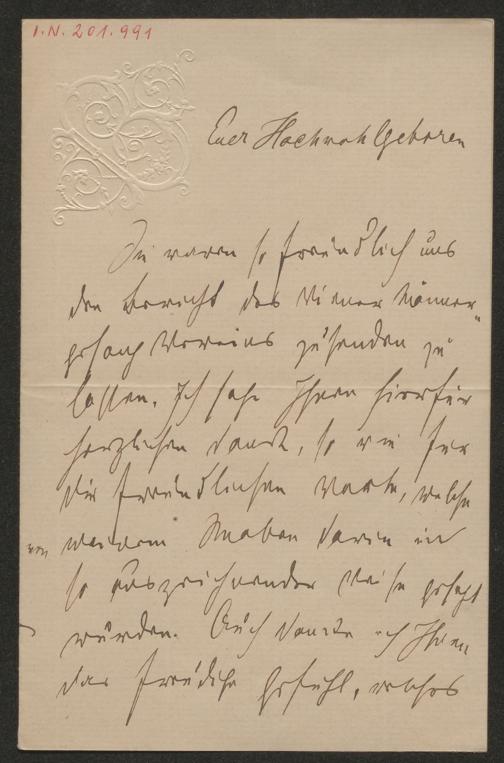 I.N. 201.991
Euer Hochwohlgeboren
Sie waren so freundlich uns
den Bericht des Wiener Männer-
gesang Vereins zusenden zu
lassen. Ich sage Ihnen hierfür
herzlichen Dank, so wie für
die freundlichen Worte, welche
von meinem Knaben darin in
so auszeichnender Weise gesagt
wurden. Auch danke ich Ihnen
das freudige Gefühl, welches